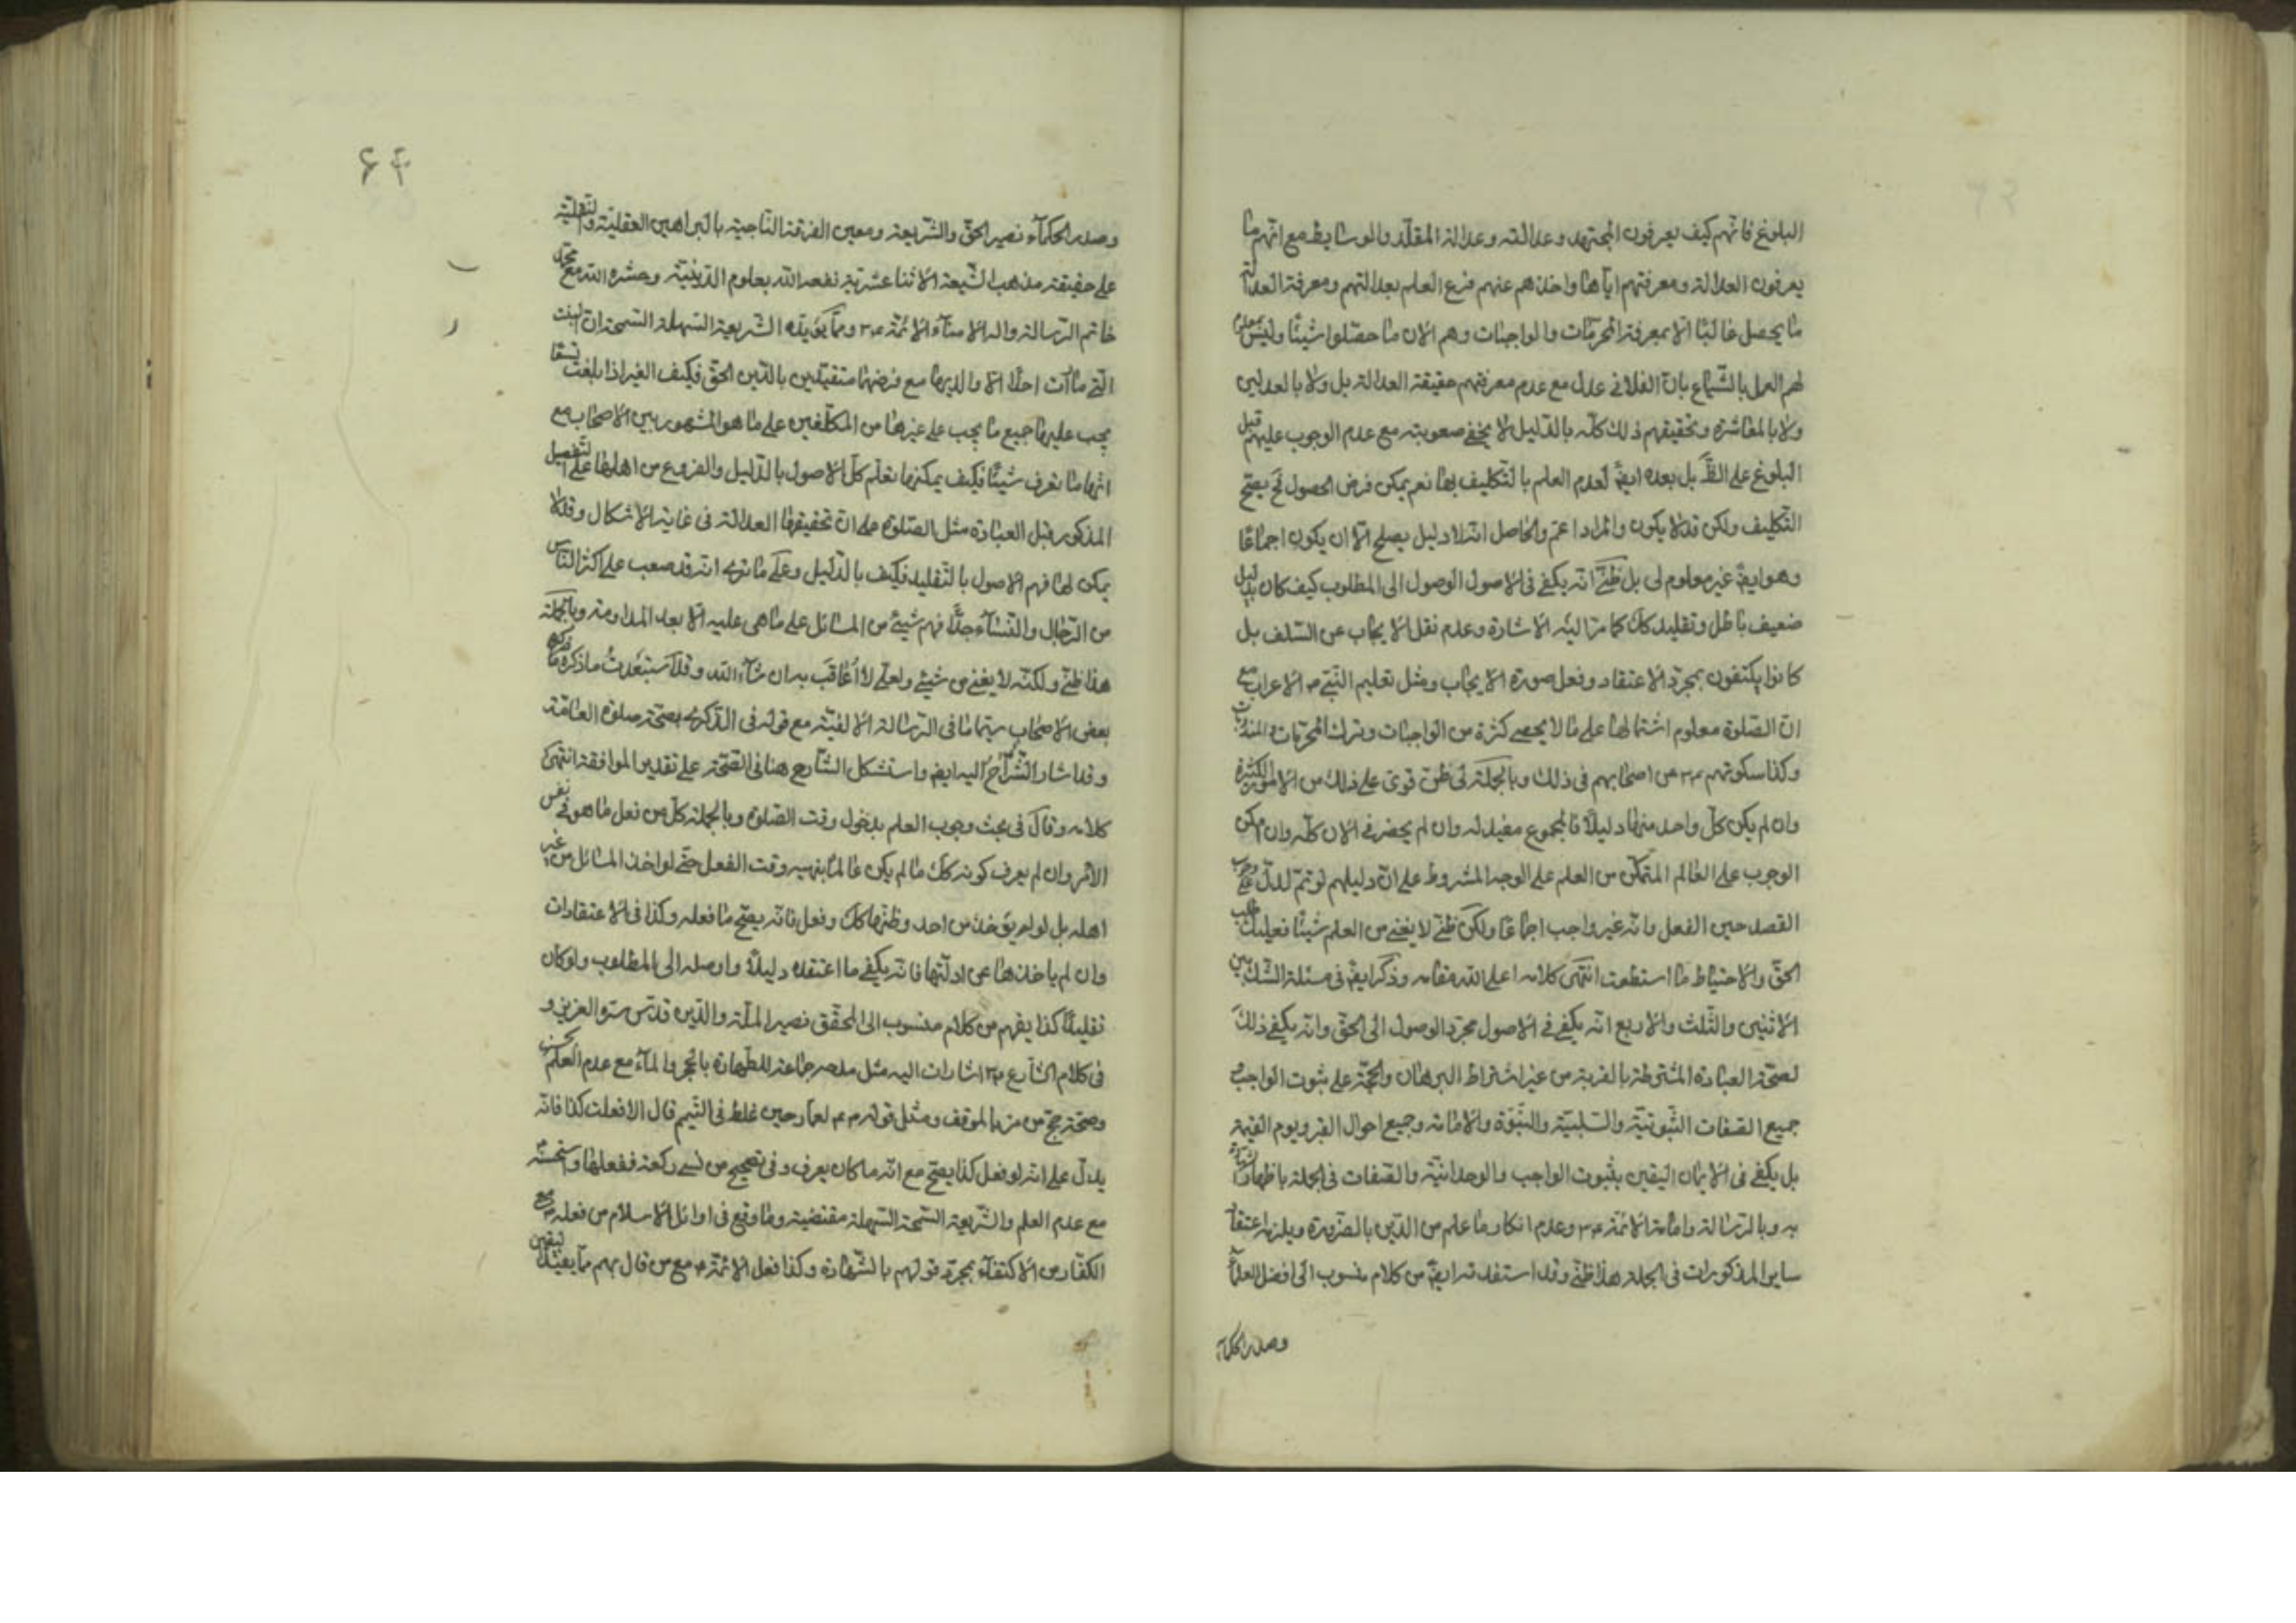 البلوغ فانهم كيف يعرفون المجتهد وعدالته وعدالة المقلد والوسايط مع انهم ما
يعرفون العدالة ومعرفتهم اياها واخذهم عنهم فرع العلم بعدالتهم ومعرفة العدالة
ما يحصل غالبًا الا بمعرفة المحرمات والواجبات وهم الان ما حصلوا شيئًا وليس بمعلوم
لهم العمل بالشياع بان الفلاني عدل مع عدم معرفتهم حقيقة العدالة بل ولا بالعدلين
ولا بالمعاشرة وتحقيقهم ذلك كله بالدليل لا يخفى صعوبته مع عدم الوجوب عليهم قبل
البلوغ على الظ بل بعده ايضً لعدم العلم بالتكليف بها نعم يمكن فرض الحصول فح يصح
التكليف ولكن قد لا يكون والمراد اعم والحاصل انه لا دليل يصلح الا ان يكون اجماعًا
وهو ايضً غير معلوم لي بل ظني انه يكفي في الاصول الوصول الى المطلوب كيف كان بدليل
ضعيف باطل وتقليد كك كما مر اليه الاشارة وعدم نقل الايجاب عن السلف بل
كانوا يكتفون بمجرد الاعتقاد وفعل صورة الايجاب ومثل تعليم النبي ص الاعراب مع
ان الصلوة معلوم اشتمالها على ما لا يحصى كثرة من الواجبات وترك المحرمات والمندوبات
وكذا سكوتهم ع من اصحابهم في ذلك وبالجملة لي ظن قوي على ذلك من الامور الكثيرة
وان لم يكن كل واحد منها دليلًا فالمجموع مفيد له وان لم يحضرني الان كله وان امكن
الوجوب على العالم المتمكن من العلم على الوجه المشروط على ان دليلهم لو تم لدل على وجوب
القصد حين الفعل وانه غير واجب اجماعًا ولكن ظني لا يغني من العلم شيئًا فعليك بطلب
الحق والاحتياط ما استطعت انتهى كلامه اعلى الله مقامه وذكر ايضً في مسئلة الشك بين
الاثنين والثلث والاربع انه يكفي في الاصول مجرد الوصول الى الحق وانه يكفي ذلك
لصحة العبادة المشترطة بالقربة من غير اشتراط البرهان والحجة على ثبوت الواجب و
جميع الصفات الثبوتية والسلبية والنبوة والامامة وجميع احوال القبر ويوم القيمة
بل يكفي في الايمان اليقين بثبوت الواجب والوحدانية والصفات في الجملة باظهار الشهادة
به وبالرسالة وامامة الائمة ع وعدم انكار ما علم من الدين بالضرورة ويلزم اعتقاد
ساير المذكورات في الجملة هذا ظني وقد استفدته ايضً من كلام منسوب الى افضل العلماء
وصدر الحكماء
٦٤
وصدر الحكمآء نصير الحق والشريعة ومعين الفرقة الناجية بالبراهين العقلية والنقلية
على حقيقة مذهب الشيعة الاثنا عشرية نفعه الله بعلوم الدينية وحشره الله مع محمد
خاتم الرسالة واله الامنآء الائمة ع ومما يؤيده الشريعة السهلة السمحة ان البنت
التي ما رات احدًا الا والديها مع فرضهما متقيدين بالدين الحق فكيف الغير اذا بلغت تسعًا
يجب عليها جميع ما يجب على غيرها من المكلفين على ما هو المشهور بين الاصحاب مع
انها ما تعرف شيئًا فكيف يمكنها تعلم كل الاصول بالدليل والفروع من اهلها على التفصيل
المذكور قبل العبادة مثل الصلوة على ان تحقيقها العدالة في غاية الاشكال وقد لا
يمكن لها فهم الاصول بالتقليد فكيف بالدليل وعلى ما نرى انه قد صعب على اكثر الناس
من الرجال والنسآء جدًّا فهم شيئ من المسائل على ما هي عليه الا بعد المداومة وبالجملة
هذا ظني ولكنه لا يغني من شيئ ولعلي لا اعاقب به ان شآء الله وقد استبعدت ما ذكره
بعض الاصحاب سيما ما في الرسالة الالفية مع قوله في الذكرى بصحة صلوة العامة
وقد اشار الشراح اليه ايضً واستشكل الشارح هنا في الصحة على تقدير الموافقة انتهى
كلامه وقال في بحث وجوب العلم بدخول وقت الصلوة وبالجملة كل من فعل ما هو في نفس
الامر وان لم يعرف كونه كك ما لم يكن عالمًا بنهيه وقت الفعل حتى لو اخذ المسائل من غير
اهله بل لو لم ياخذ من احد وظنها كك وفعل فانه يصح ما فعله وكذا في الاعتقادات
وان لم ياخذها عن ادلتها فانه يكفي ما اعتقده دليلًا واوصله الى المطلوب ولو كان
تقليدًا كذا يفهم من كلام منسوب الى المحقق نصير الملة والدين قدس سره العزيز و
في كلام الشارع ع اشارات اليه مثل مدحه جماعة للطهارة بالحجر والمآء مع عدم العلم بحسنه
وصحة حج من مر بالموقف ومثل قوله ع لعمار حين غلط في التيمم قال الا فعلت كذا فانه
يدل على انه لو فعل كذا يصح مع انه ما كان يعرف وفي تصحيح من نسي ركعة ففعلها واستحسنه
مع عدم العلم والشريعة السمحة السهلة مقتضية وما وقع في اوائل الاسلام من فعله ص مع
الكفار من الاكتفآء بمجرد قولهم بالشهادة وكذا فعل الائمة ع مع من قال بهم مما يفيد اليقين